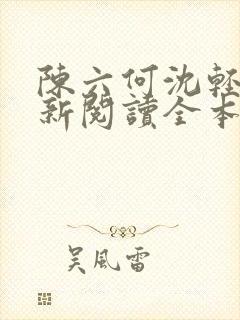 陳六何沈輕
新閱讀全本
吴風雷